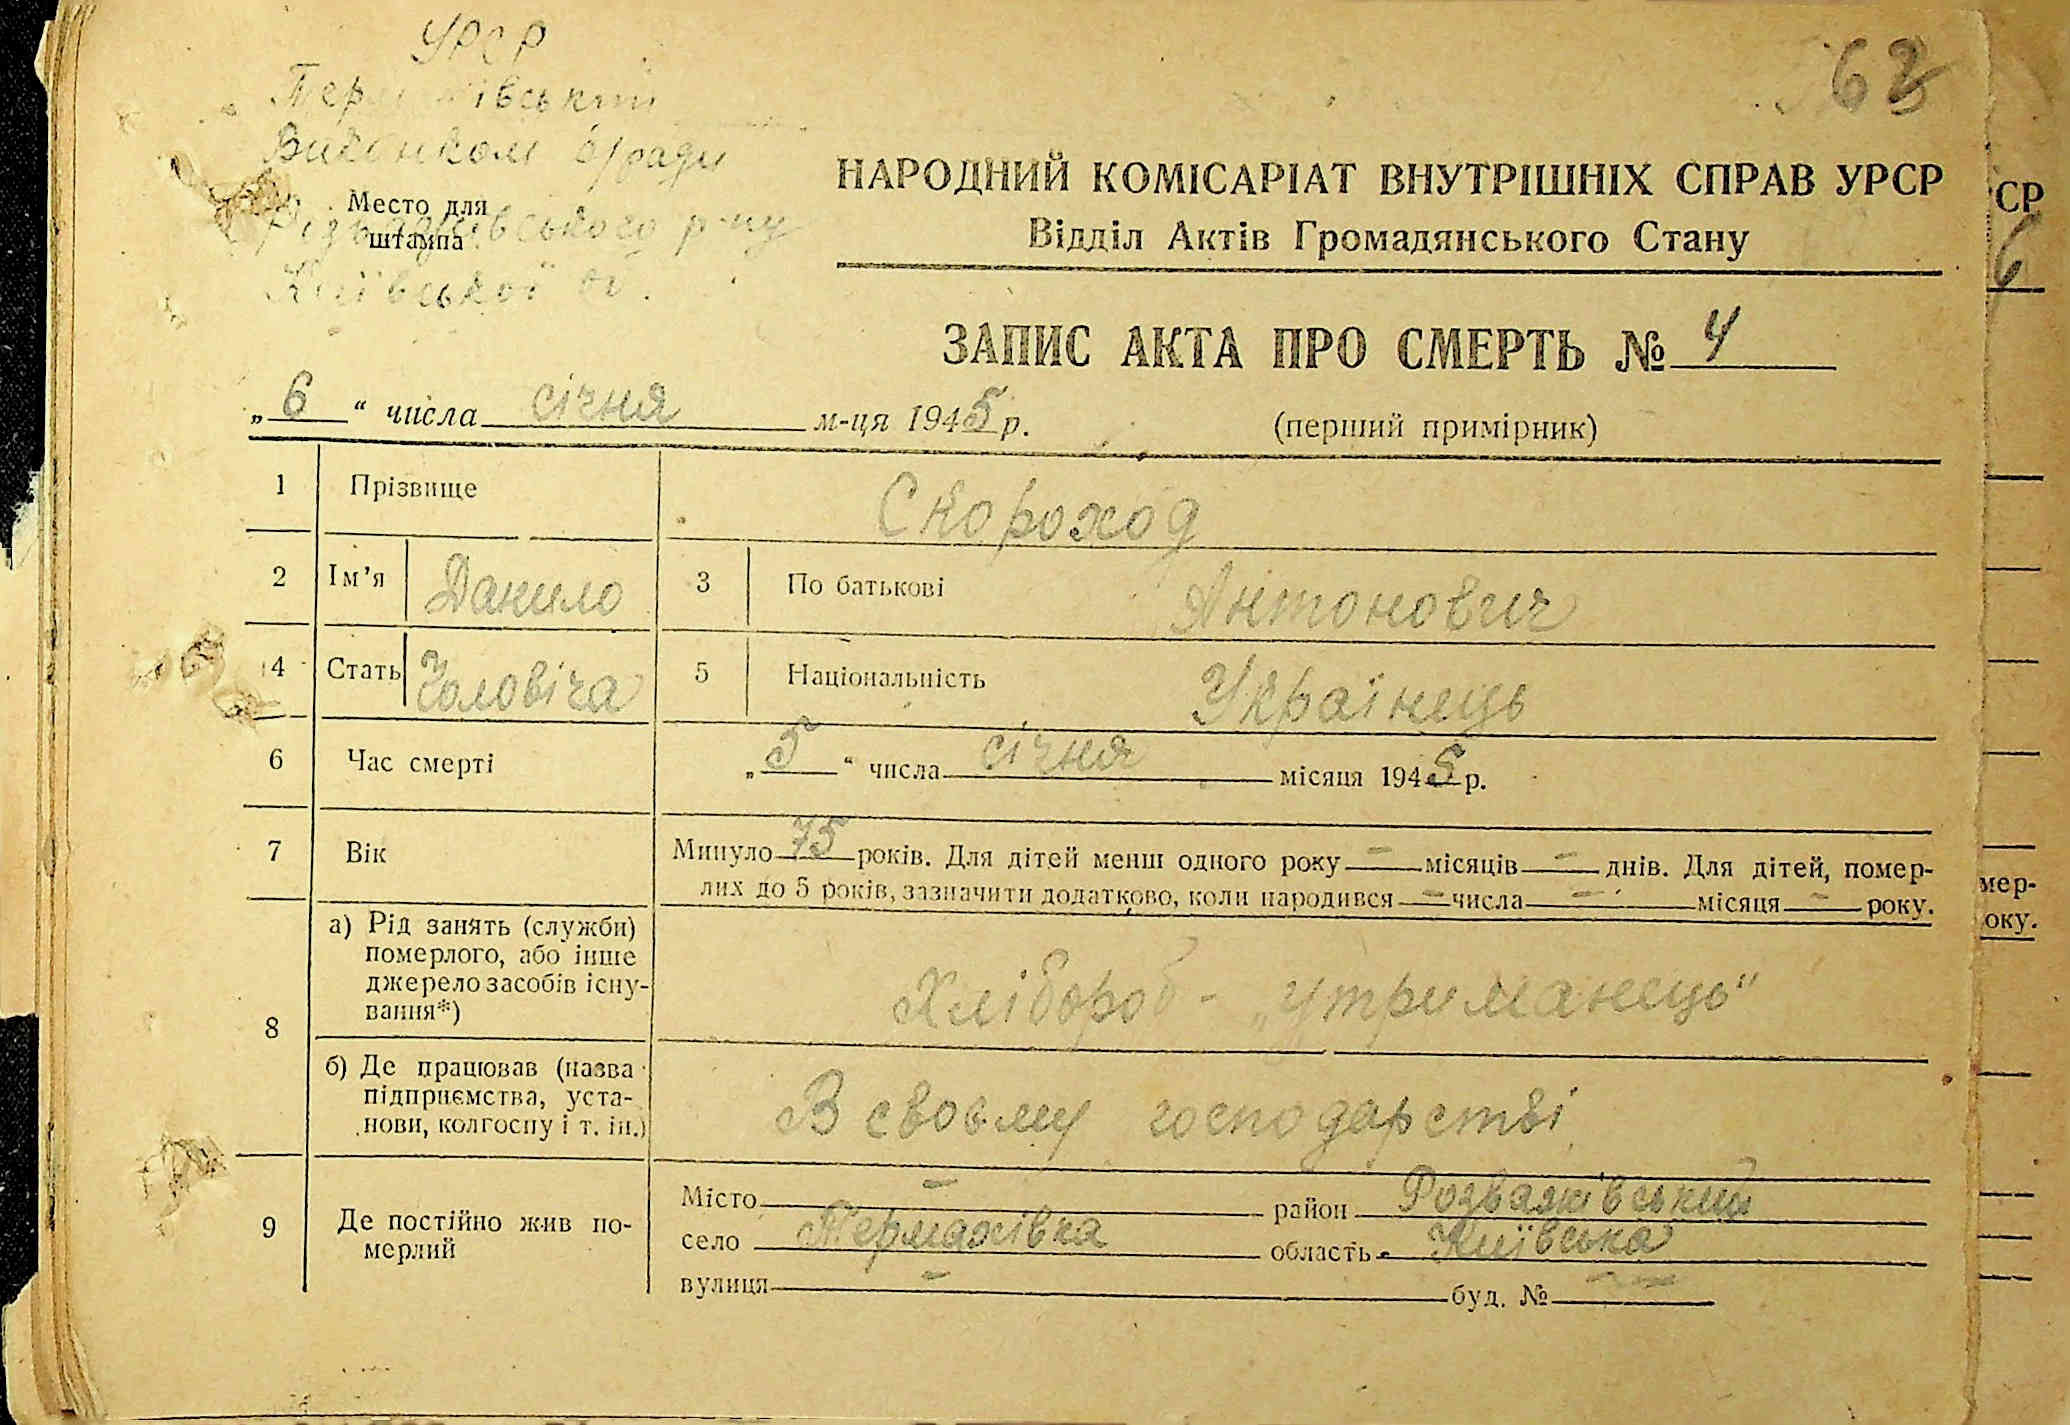 УРСР
63
Виконком с/ради
Розважівського р-ну
Київської об.
Место для
штампа
НАРОДНИЙ КОМІСАРІАТ ВНУТРІШНІХ СПРАВ УРСР
Відділ Актів Громадянського Стану
ЗАПИС АКТА ПРО СМЕРТЬ № 4
„ 6 “ числа січня м-ця 1945 р.
(перший примірник)
1 Прізвище Скороход
2 Ім’я Данило 3 По батькові Антонович
4 Стать Чоловіча 5 Національність Українець
6 Час смерті „ 5 “ числа січня місяця 1945 р.
7 Вік Минуло 75 років. Для дітей менш одного року — місяців — днів. Для дітей, помер-
лих до 5 років, зазначити додатково, коли народився — числа — місяця — року.
8 а) Рід занять (служби)
померлого, або інше
джерело засобів існу-
вання*)
Хлібороб - „утриманець“
б) Де працював (назва
підприємства, уста-
нови, колгоспу і т. ін.)
В своєму господарстві
9 Де постійно жив по-
мерлий
Місто — район Розважівський
село Термахівка область Київська
вулиця — буд. № —
СР
6
мер-
оку.